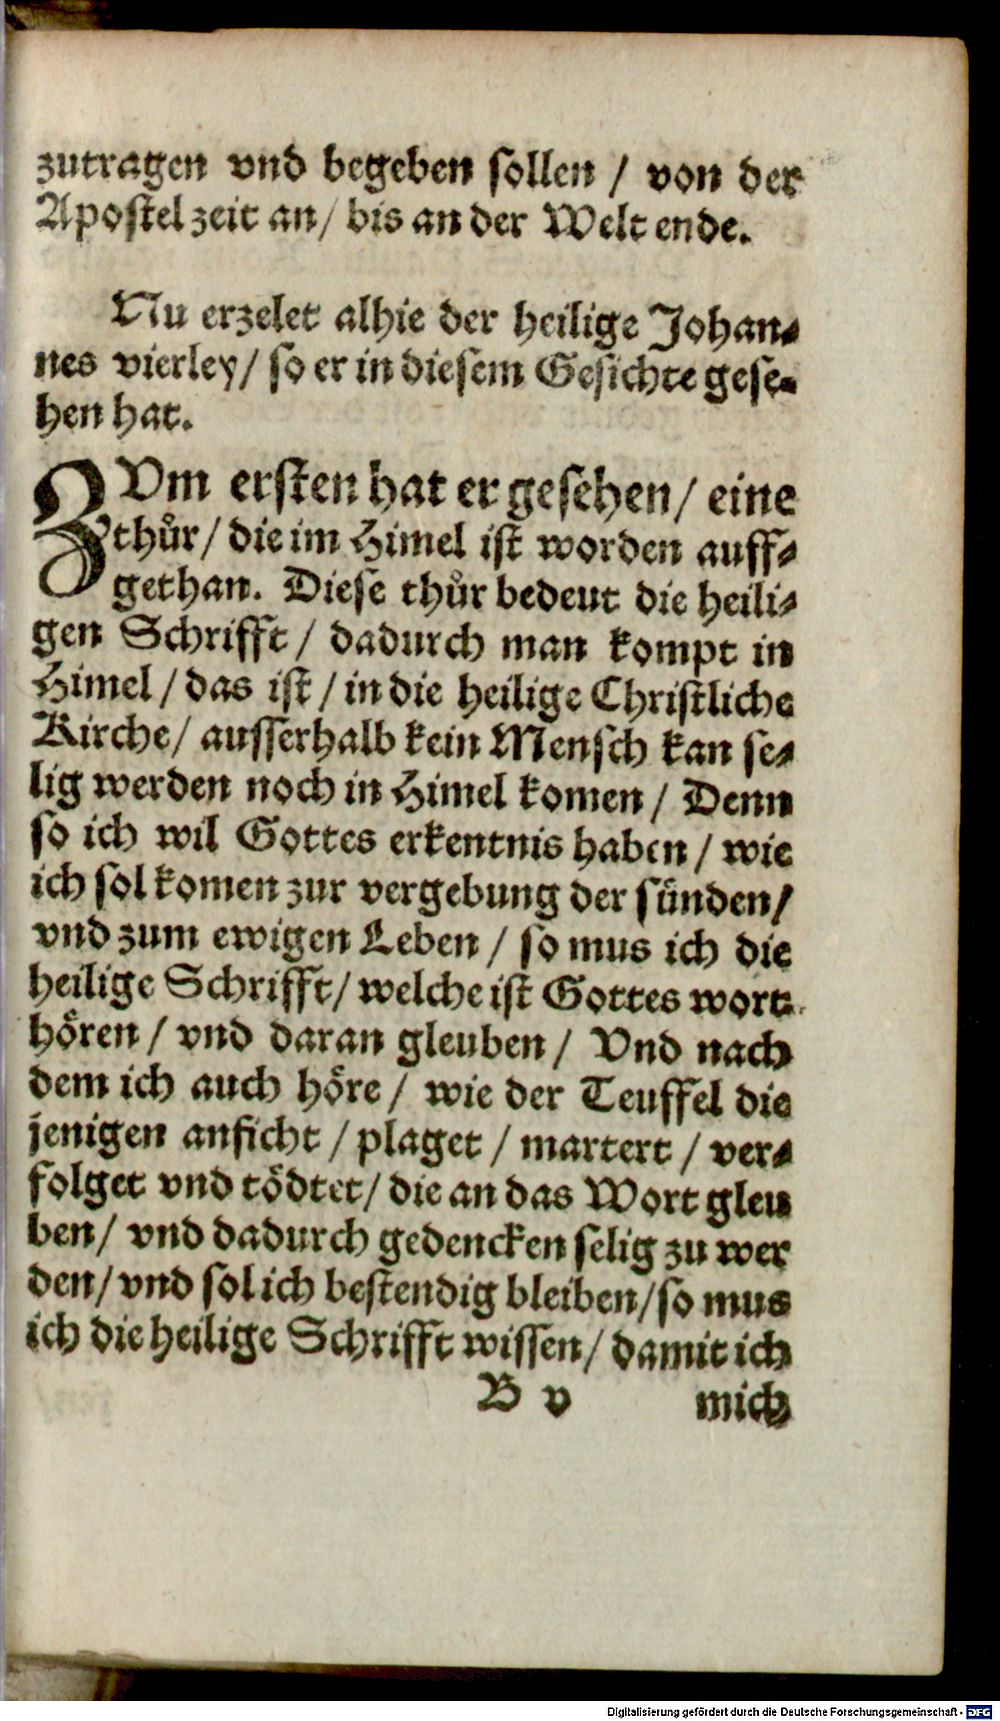 zutragen vnd begeben sollen / von der
Apostel zeit an / bis an der Welt ende.
Nu erzelet alhie der heilige Johan⸗
nes vierley / so er in diesem Gesichte gese⸗
hen hat.
ZVm ersten hat er gesehen / eine
thuͤr / die im Himel ist worden auff⸗
gethan. Diese thuͤr bedeut die heili⸗
gen Schrifft / dadurch man kompt in
Himel / das ist / in die heilige Christliche
Kirche / ausserhalb kein Mensch kan se⸗
lig werden noch in Himel komen / Denn
so ich wil Gottes erkentnis haben / wie
ich sol komen zur vergebung der sünden /
vnd zum ewigen Leben / so mus ich die
heilige Schrifft / welche ist Gottes wort
hören / vnd daran gleuben / Vnd nach
dem ich auch höre / wie der Teuffel die
jenigen anficht / plaget / martert / ver⸗
folget vnd tödtet / die an das Wort gleu
ben / vnd dadurch gedencken selig zu wer
den / vnd sol ich bestendig bleiben / so mus
ich die heilige Schrifft wissen / damit ich
B v mich
Digitalisierung gefördert durch die Deutsche Forschungsgemeinschaft - DFG